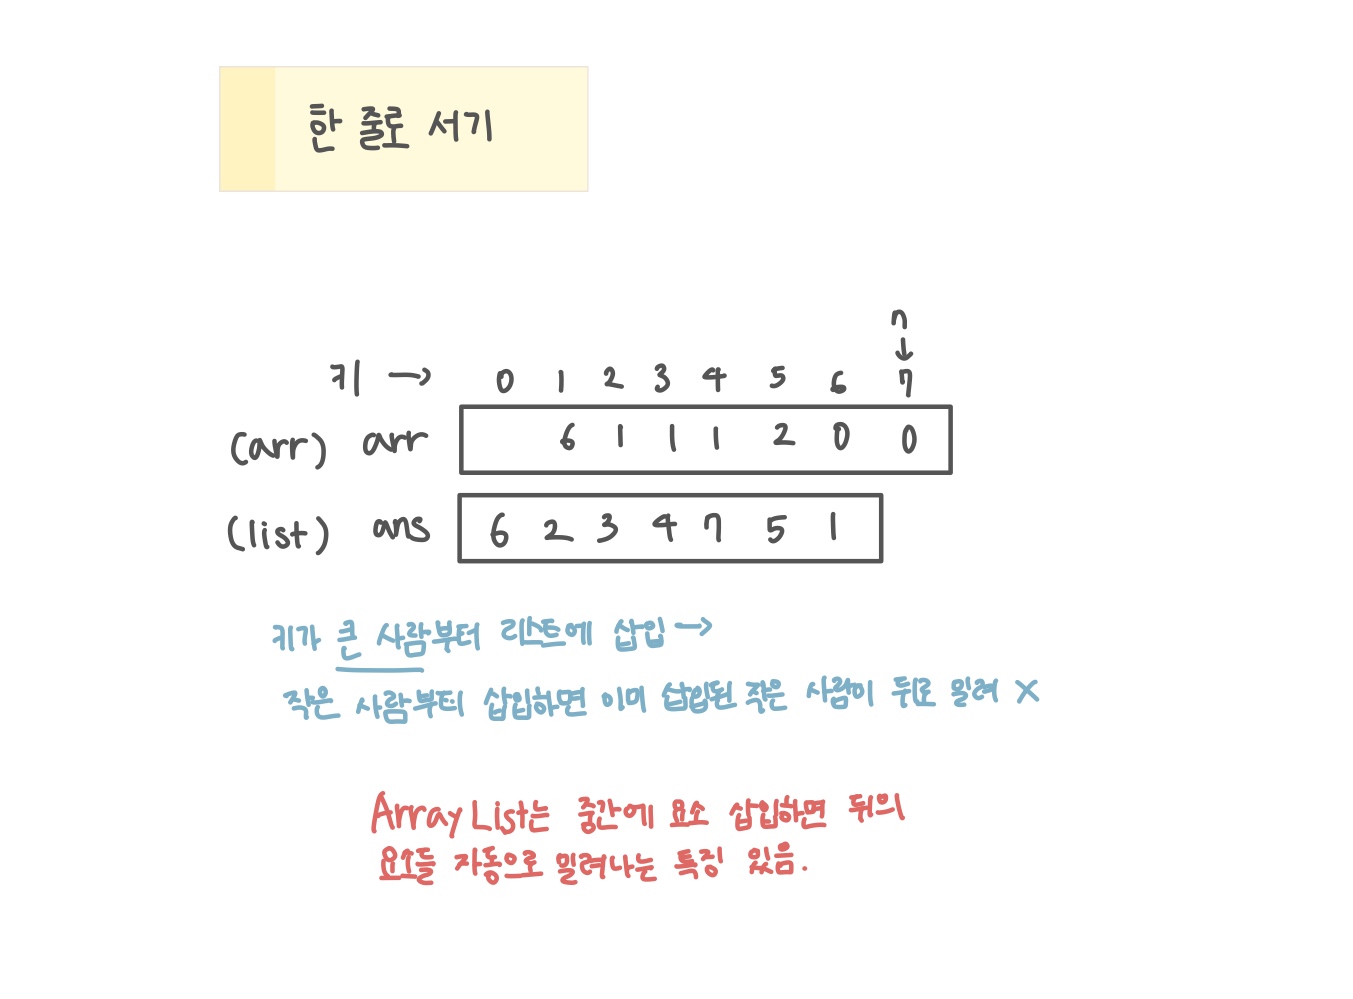 한 줄로 서기
n
↓
키 → 0 1 2 3 4 5 6 7
(arr) arr 6 1 1 1 2 0 0
(list) ans 6 2 3 4 7 5 1
키가 큰 사람부터 리스트에 삽입 →
작은 사람부터 삽입하면 이미 삽입된 작은 사람이 뒤로 밀려 X
Array List는 중간에 요소 삽입하면 뒤의
요소들 자동으로 밀려나는 특징 있음.